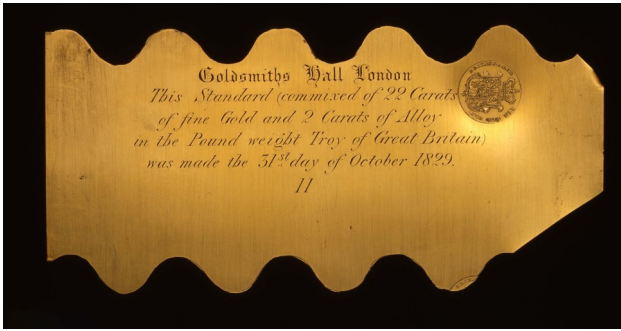 Goldsmiths Hall London
This Standard (commixed of 22 Carats
of fine Gold and 2 Carats of Alloy
in the Pound weight Troy of Great Britain)
was made the 31st day of October 1829.
11